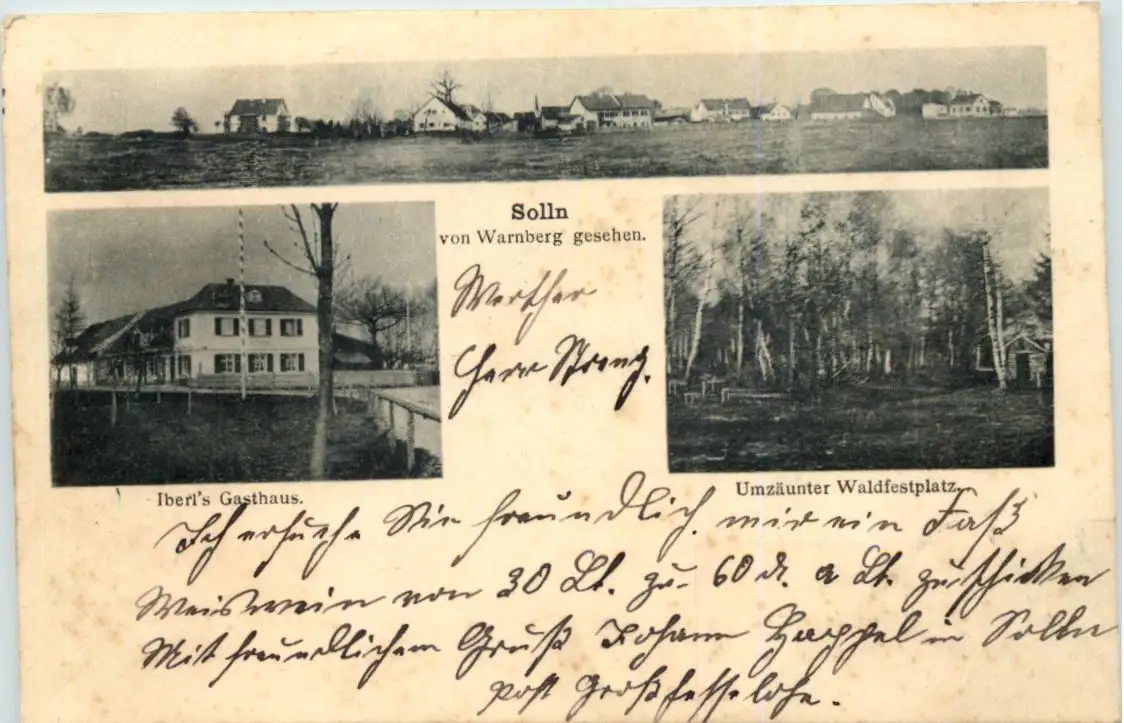 Solln
von Warnberg gesehen.
Werther
Herr Streng.
Iberl's Gasthaus.
Umzäunter Waldfestplatz.
Ich ersuche Sie freundlich mir ein Faß
Weiswein von 30 Lt. zu 60 d. a Lt. zu schicken
Mit freundlichem Gruß Johann Happel in Solln
post Großhesselohe.